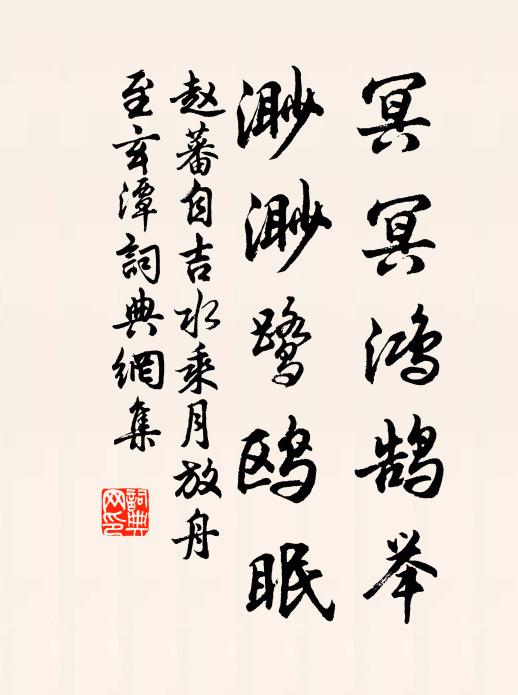 冥冥鸿鹄举
渺渺鹭鸥眠
赵蕃自吉水乘月放舟
至玄潭詞典網集
詞典
网印